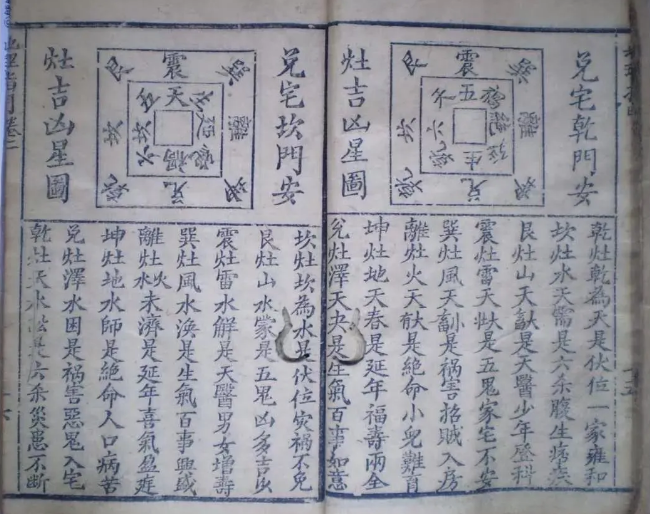 兌宅乾門安
灶吉凶星圖
震
巽
離
兌
乾
坎
艮
五
六
生
乾灶乾為天是伏位一家雍和
坎灶水天需是六杀腹生病
艮灶山天是天醫少年登科
震灶雷天是五鬼家宅不安
巽灶風天是禍害招賊入房
離灶火天是絶命小兒難育
坤灶地天春是延年福壽兩全
兌灶澤天夬是生氣百事如意
兌宅坎門安
灶吉凶星圖
震
巽
離
兌
乾
坎
艮
天
禍
坎灶坎為水是伏位灾禍不免
艮灶山水蒙是五鬼凶多吉
震灶雷水解是天醫男女增壽
巽灶風水渙是生氣百事興盛
離灶未濟是延年喜氣盈庭
坤灶地水師是絶命人口病苦
兌灶澤水困是禍害惡鬼入宅
乾灶天水訟是六杀災患不斷